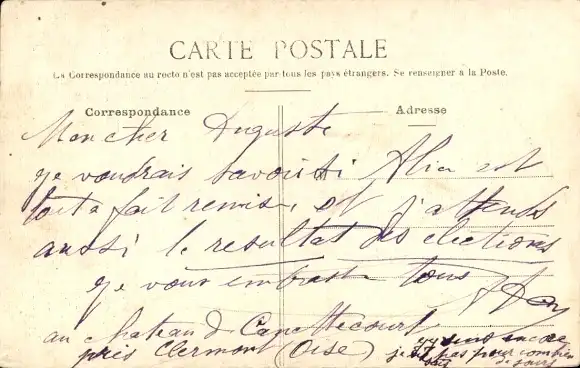 CARTE POSTALE
La Correspondance au recto n'est pas acceptée par tous les pays étrangers. Se renseigner à la Poste.
Correspondance
Adresse
Mon cher Auguste
je voudrais savoir si est
tout a fait remis, et j'attends
aussi le resultat des elections
je vous embrasse tous
au chateau de
près Clermont (Oise)
j'y suis encore
je sais pas pour combien
de jours